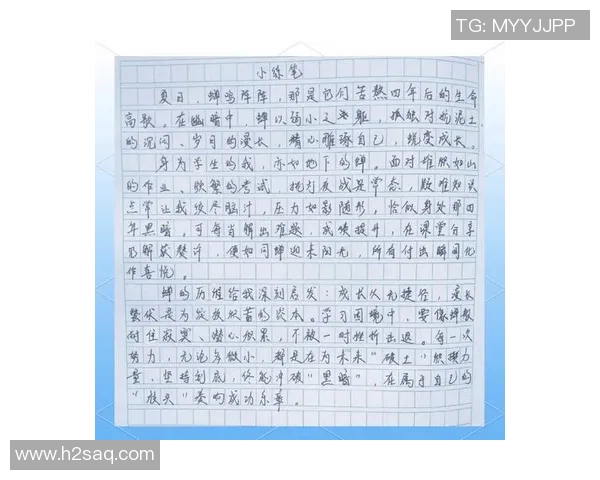 TG: MYYJJPP
小练笔
夏日，蝉鸣阵阵，那是它们苦熬四年后的生命
高歌。在幽暗中，蝉以弱小之躯，孤独对抗泥土
的沉闷、岁月的漫长，精心雕琢自己，蜕变成长。
身为学生的我，亦如地下的蝉。面对堆积如山
的作业、频繁的考试，挑灯夜战是常态，疑难知识
点常让我绞尽脑汁，压力如影随形，恰似身处那四
年黑暗。可每当解出难题，成绩提升，在课堂分享
见解获赞许，便如同蝉迎来阳光，所有付出瞬间化
作喜悦。
蝉的历程给我深刻启发：成长从无捷径，漫长
蛰伏是为绽放积蓄的资本。学习困境中，要像蝉般
耐住寂寞、潜心积累，不被一时挫折击退。每一次
努力，无论多微小，都是在为未来“破土”积攒力
量，坚持到底，终能冲破“黑暗”，在属于自己的
“枝头”奏响成功乐章。
www.h2saq.com